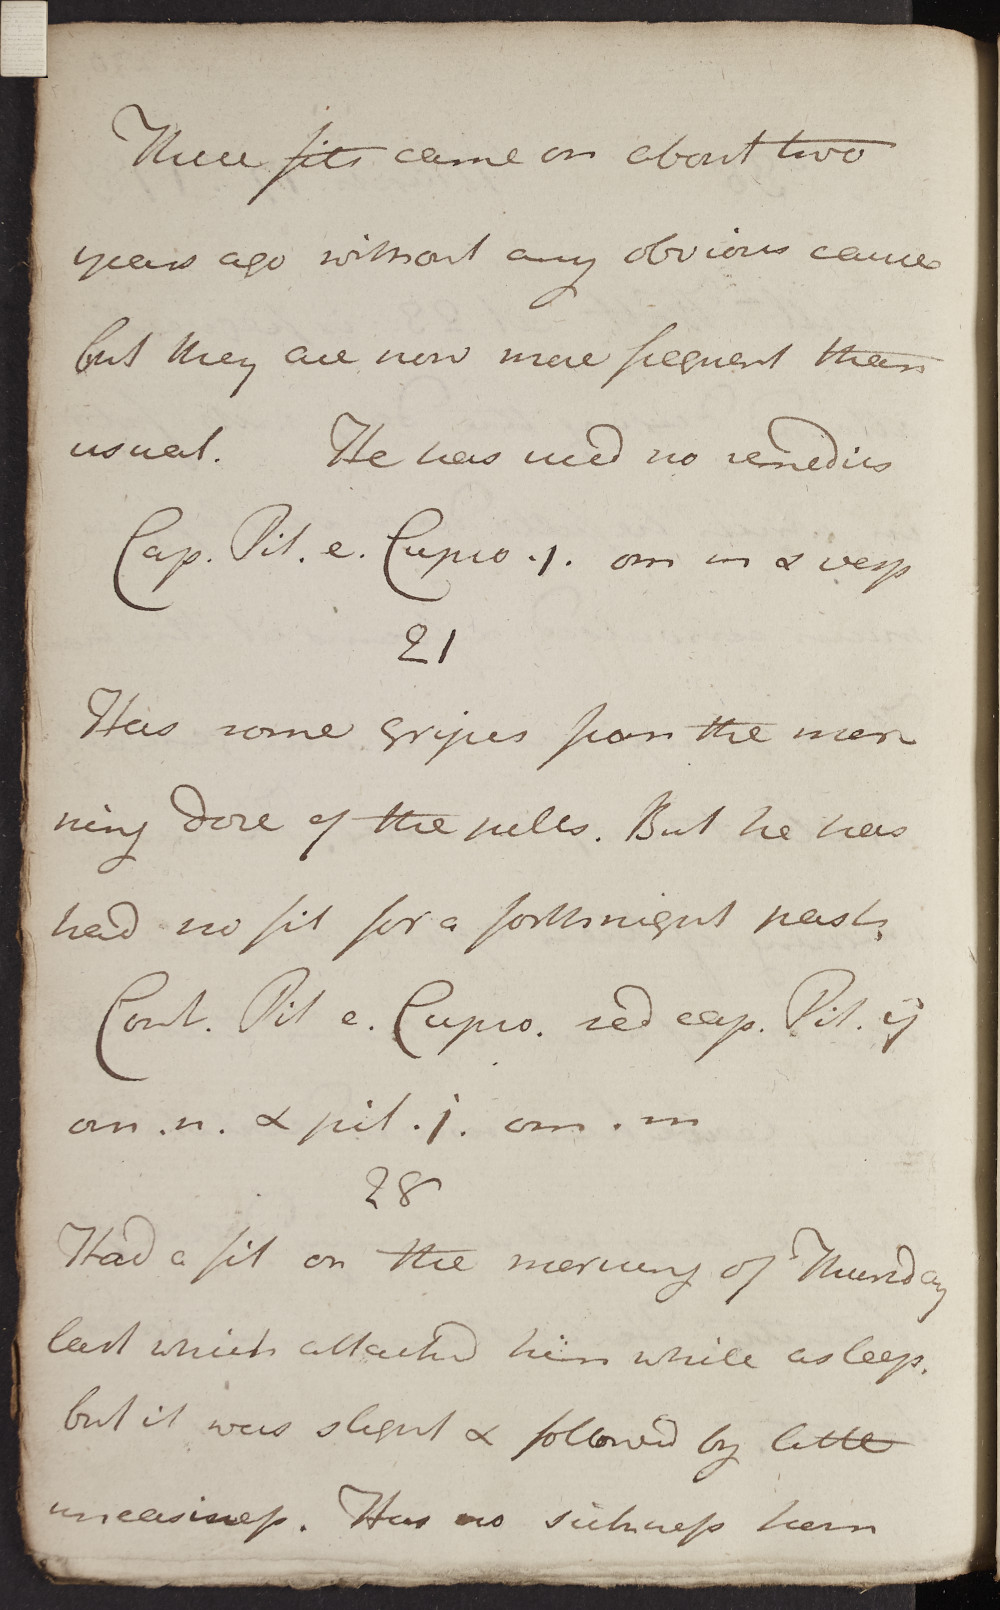 These fits came on about two
years ago without any obvious cause
but they are now more frequent than
usual. He has used no remedies
Cap. Pil. e. Cupro .j. om m & vesp
21
Has some gripes from the mor
ning dose of the pills. But he has
had no fit for a forthnight past,
Cont. Pil e. Cupro. sed cap. Pil. ij
om .n. & pil .j. om . m
28
Had a fit on the morning of Thursday
last which attacked him while asleep,
but it was slight & followed by little
uneasiness. Has no sickness from